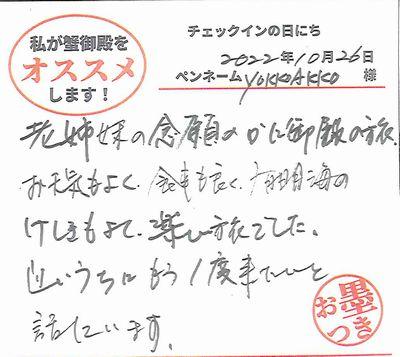 私が蟹御殿を
オススメ
します!
チェックインの日にち
2022年10月26日
ペンネーム YOKKOAKKO 様
老姉妹の念願のかに御殿の旅、
お天気もよく、食事も良く、有明海の
けしきもよくて、楽しい旅でした。
近いうちにもう1度来たいと
話しています。
お墨つき